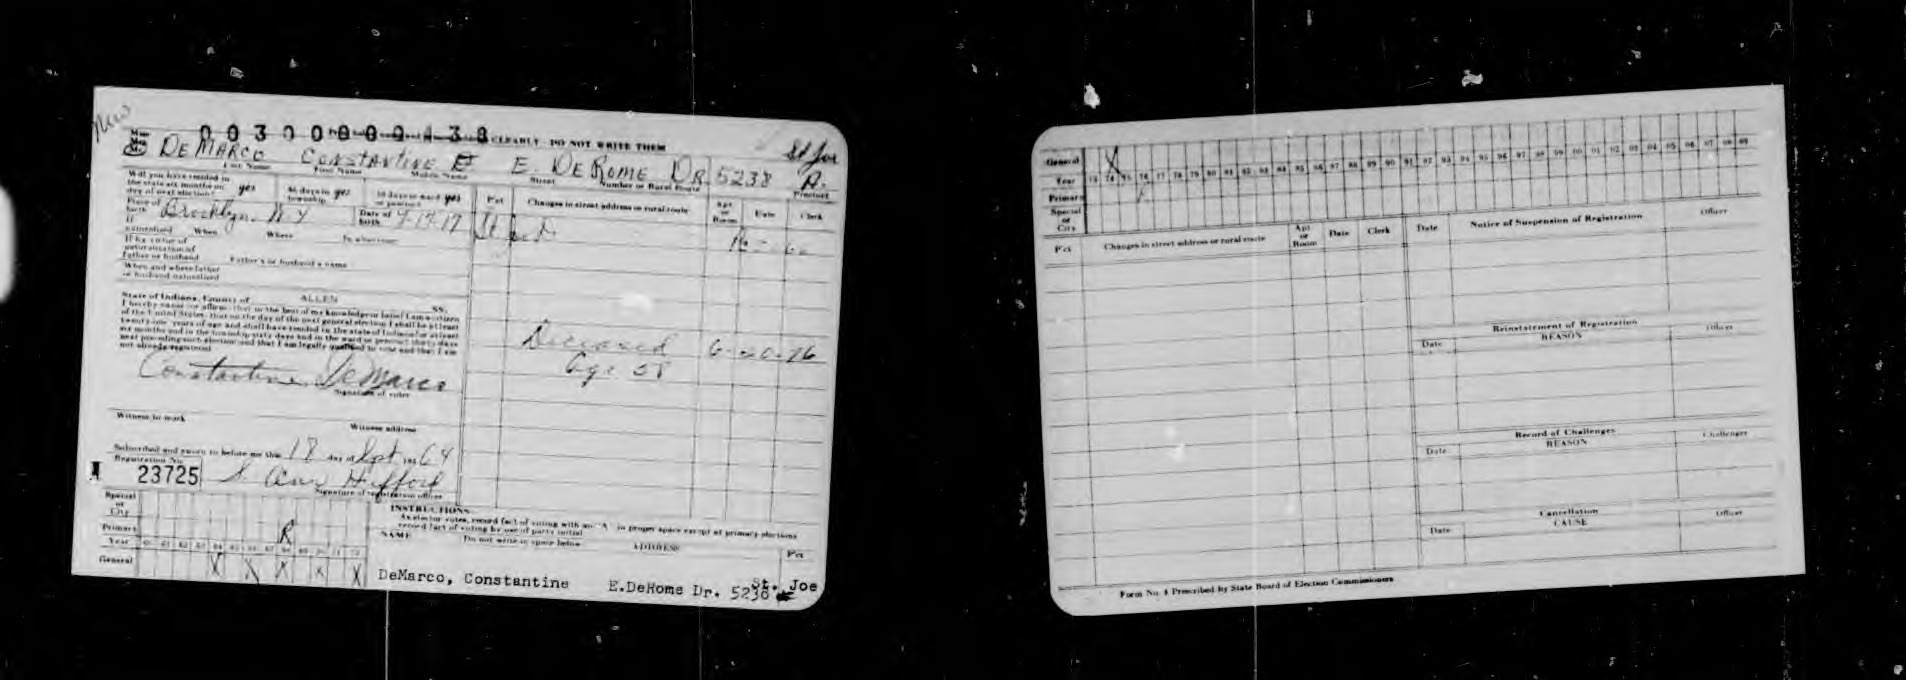 New
00300000438 CLEARLY DO NOT WRITE THEM
St Joe
DeMarco Constantine E. DeRome Dr. 5238 A.
Last Name First Name Middle Name Street Number or Rural Route Precinct
Will you have resided in
the state six months on yes 60 days in yes 30 days in ward yes
day of next election? township or precinct
Pct Changes in street address or rural route Apt. or Room Date Clerk
Place of birth Brooklyn, N Y Date of birth
If naturalized When Where
If by virtue of
naturalization of
father or husband Father's or husband's name
When and where father
or husband naturalized
State of Indiana, County of ALLEN SS.
I hereby swear or affirm that to the best of my knowledge or belief I am a citizen
of the United States, that on the day of the next general election I shall be at least
twenty-one years of age and shall have resided in the state of Indiana for at least
six months and in the township sixty days and in the ward or precinct thirty days
next preceding such election and that I am legally qualified to vote and that I am
not already registered.
Deceased 6-20-76
Age 58
Constantine DeMarco
Signature of voter
Witness to mark Witness address
Subscribed and sworn to before me this 18 day of Sept. 1964
Registration No.
23725
Signature of registration officer
Special
or
City
Primary R
Year 60 61 62 63 64 65 66 67 68 69 70 71 72
General X X X X X
INSTRUCTIONS
As elector votes, record fact of voting with an "X" in proper space except at primary elections
record fact of voting by use of party initial
NAME Do not write in space below ADDRESS Pct
DeMarco, Constantine E.DeRome Dr. 5238 St. Joe
General X
Year 73 74 75 76 77 78 79 80 81 82 83 84 85 86 87 88 89 90 91 92 93 94 95 96 97 98 99 00 01 02 03 04 05 06 07 08 09
Primary
Special
or
City
Pct Changes in street address or rural route Apt. or Room Date Clerk
Date Notice of Suspension of Registration Officer
Reinstatement of Registration
Date REASON Officer
Record of Challenges
Date REASON Challenger
Cancellation
Date CAUSE Officer
Form No. 4 Prescribed by State Board of Election Commissioners